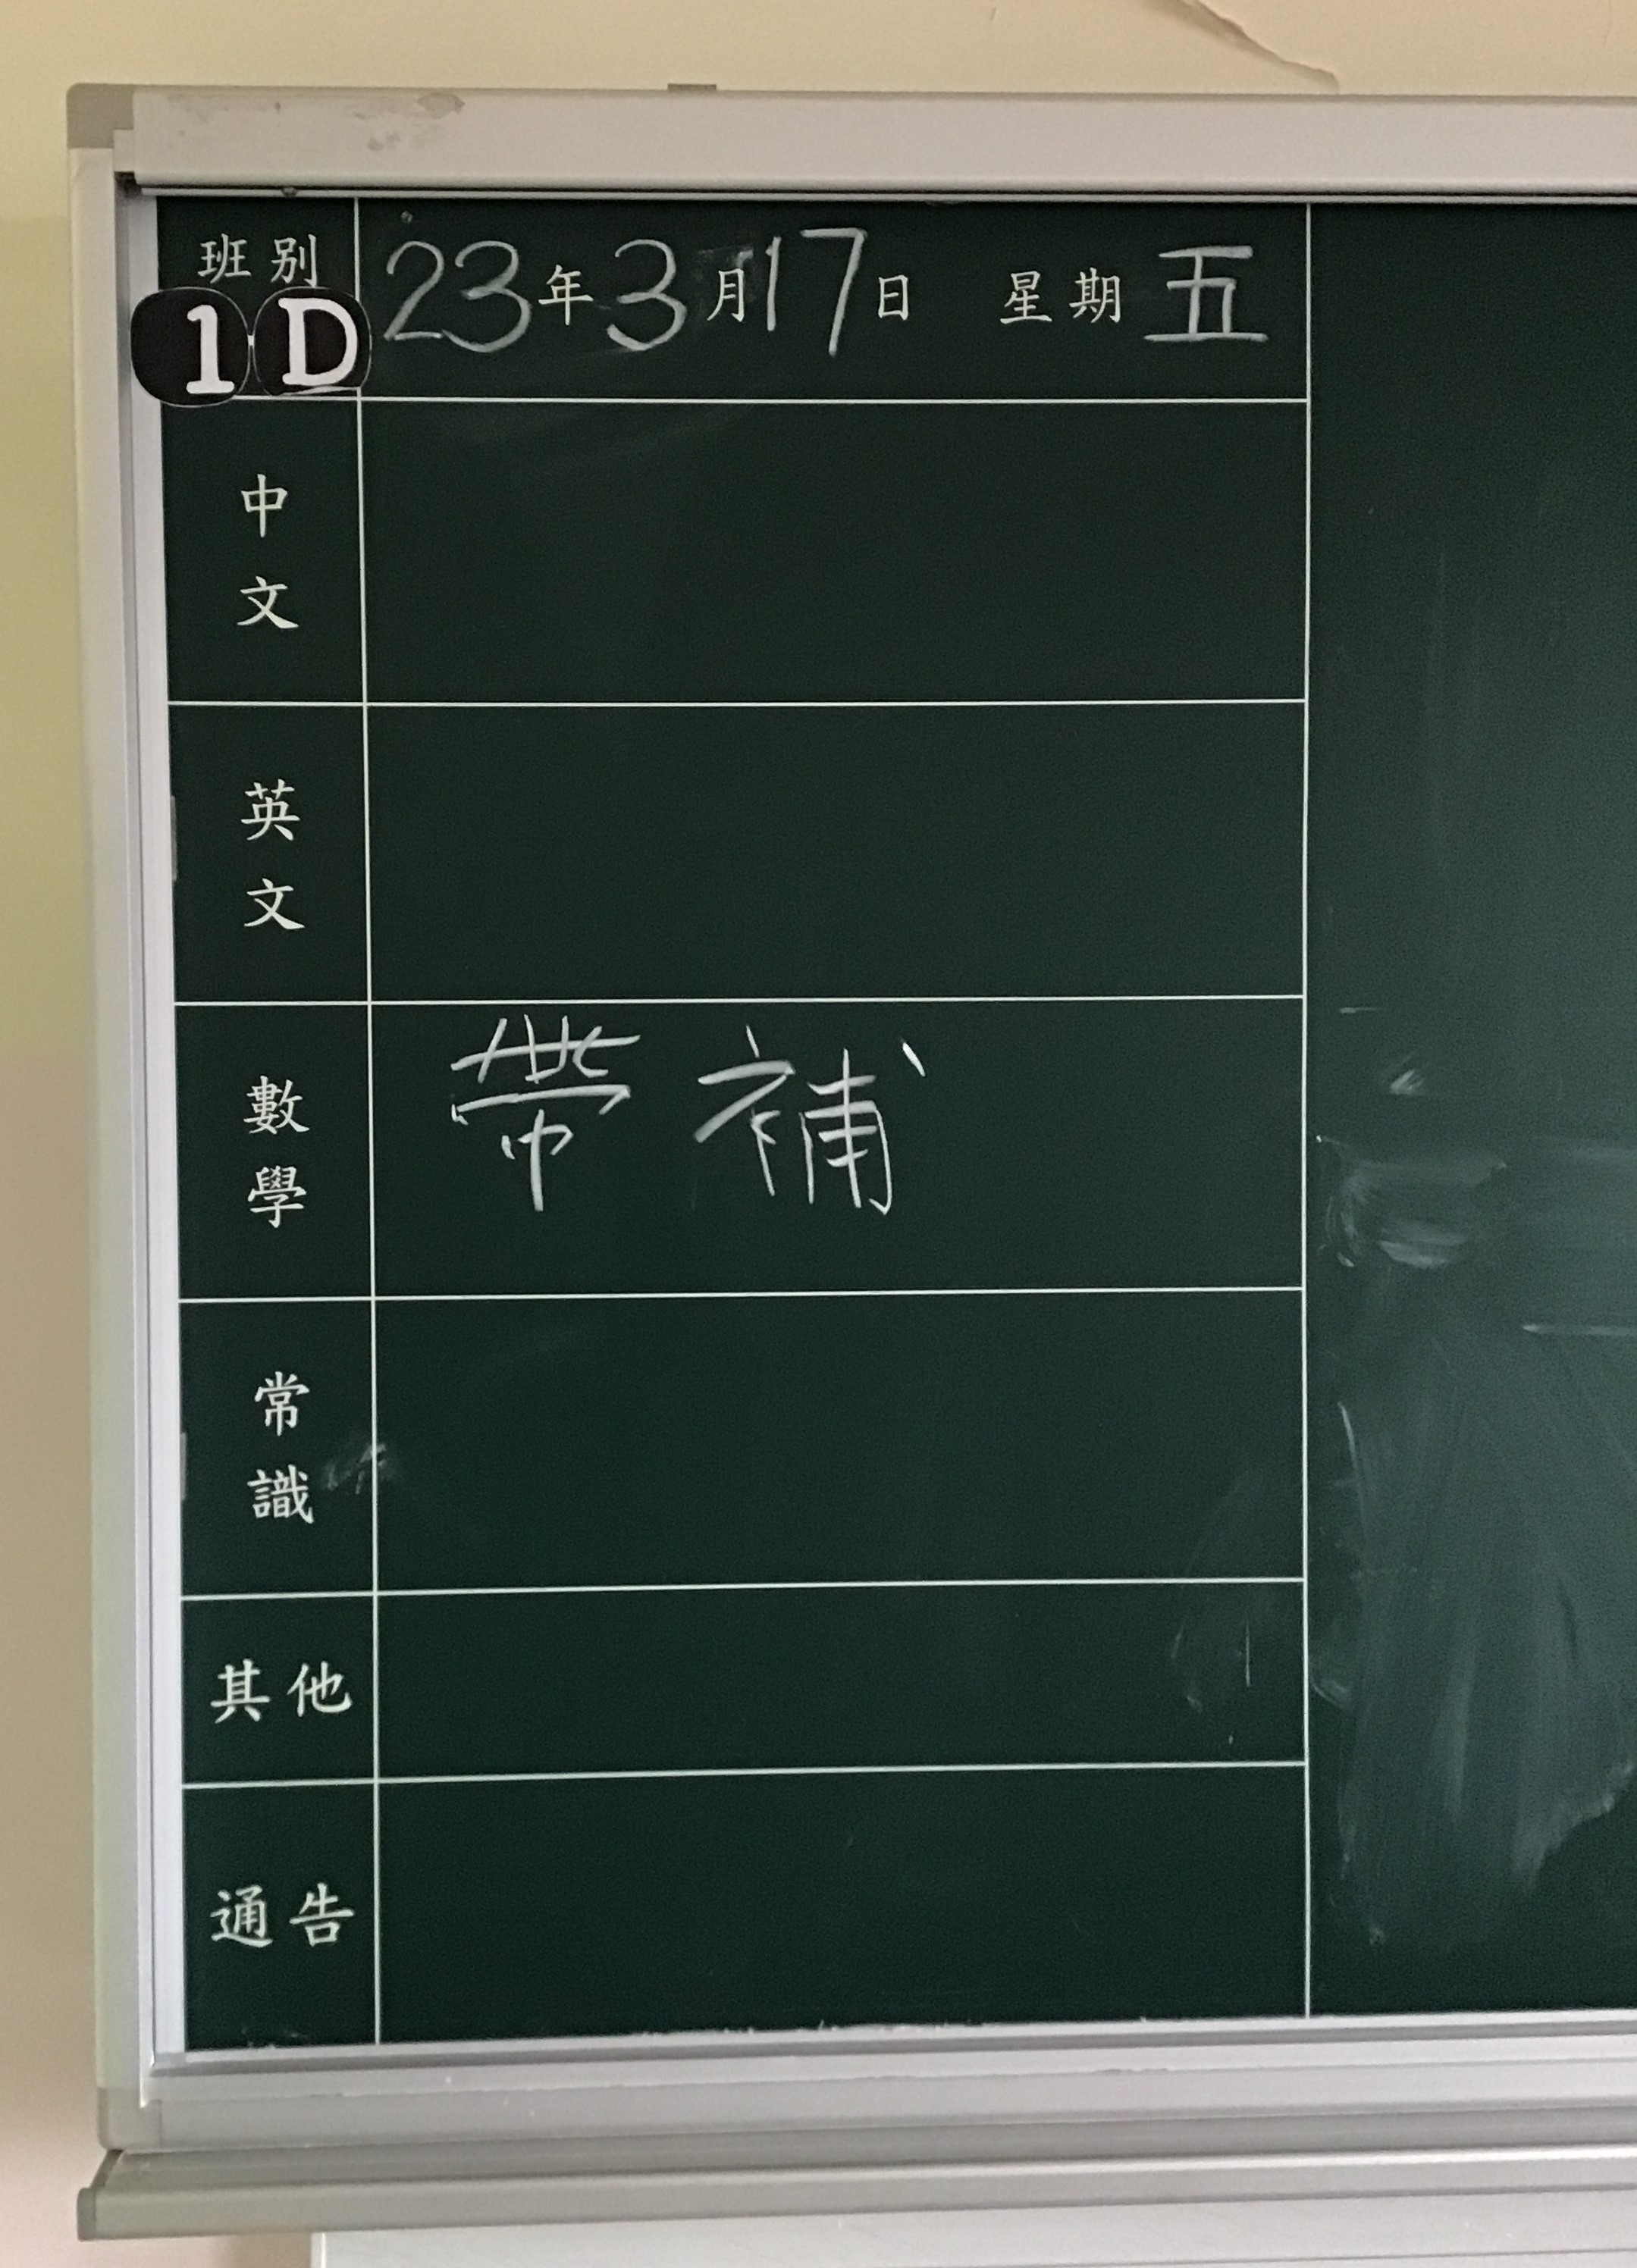 班別
1D
23年3月17日 星期五
中文
英文
數學
帶補
常識
其他
通告